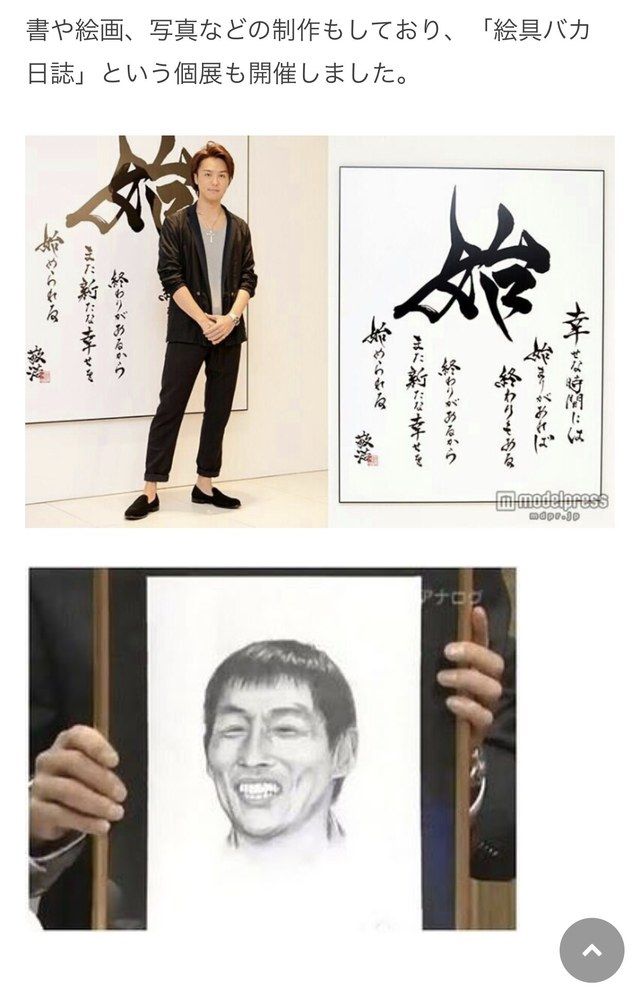 書や絵画、写真などの制作もしており、「絵具バカ
日誌」という個展も開催しました。
始
終わりがあるから
また新たな幸せを
始められる
敬浩
始
幸せな時間には
始まりがあれば
終わりもある
終わりがあるから
また新たな幸せを
始められる
敬浩
modelpress
mdpr.jp
アナログ